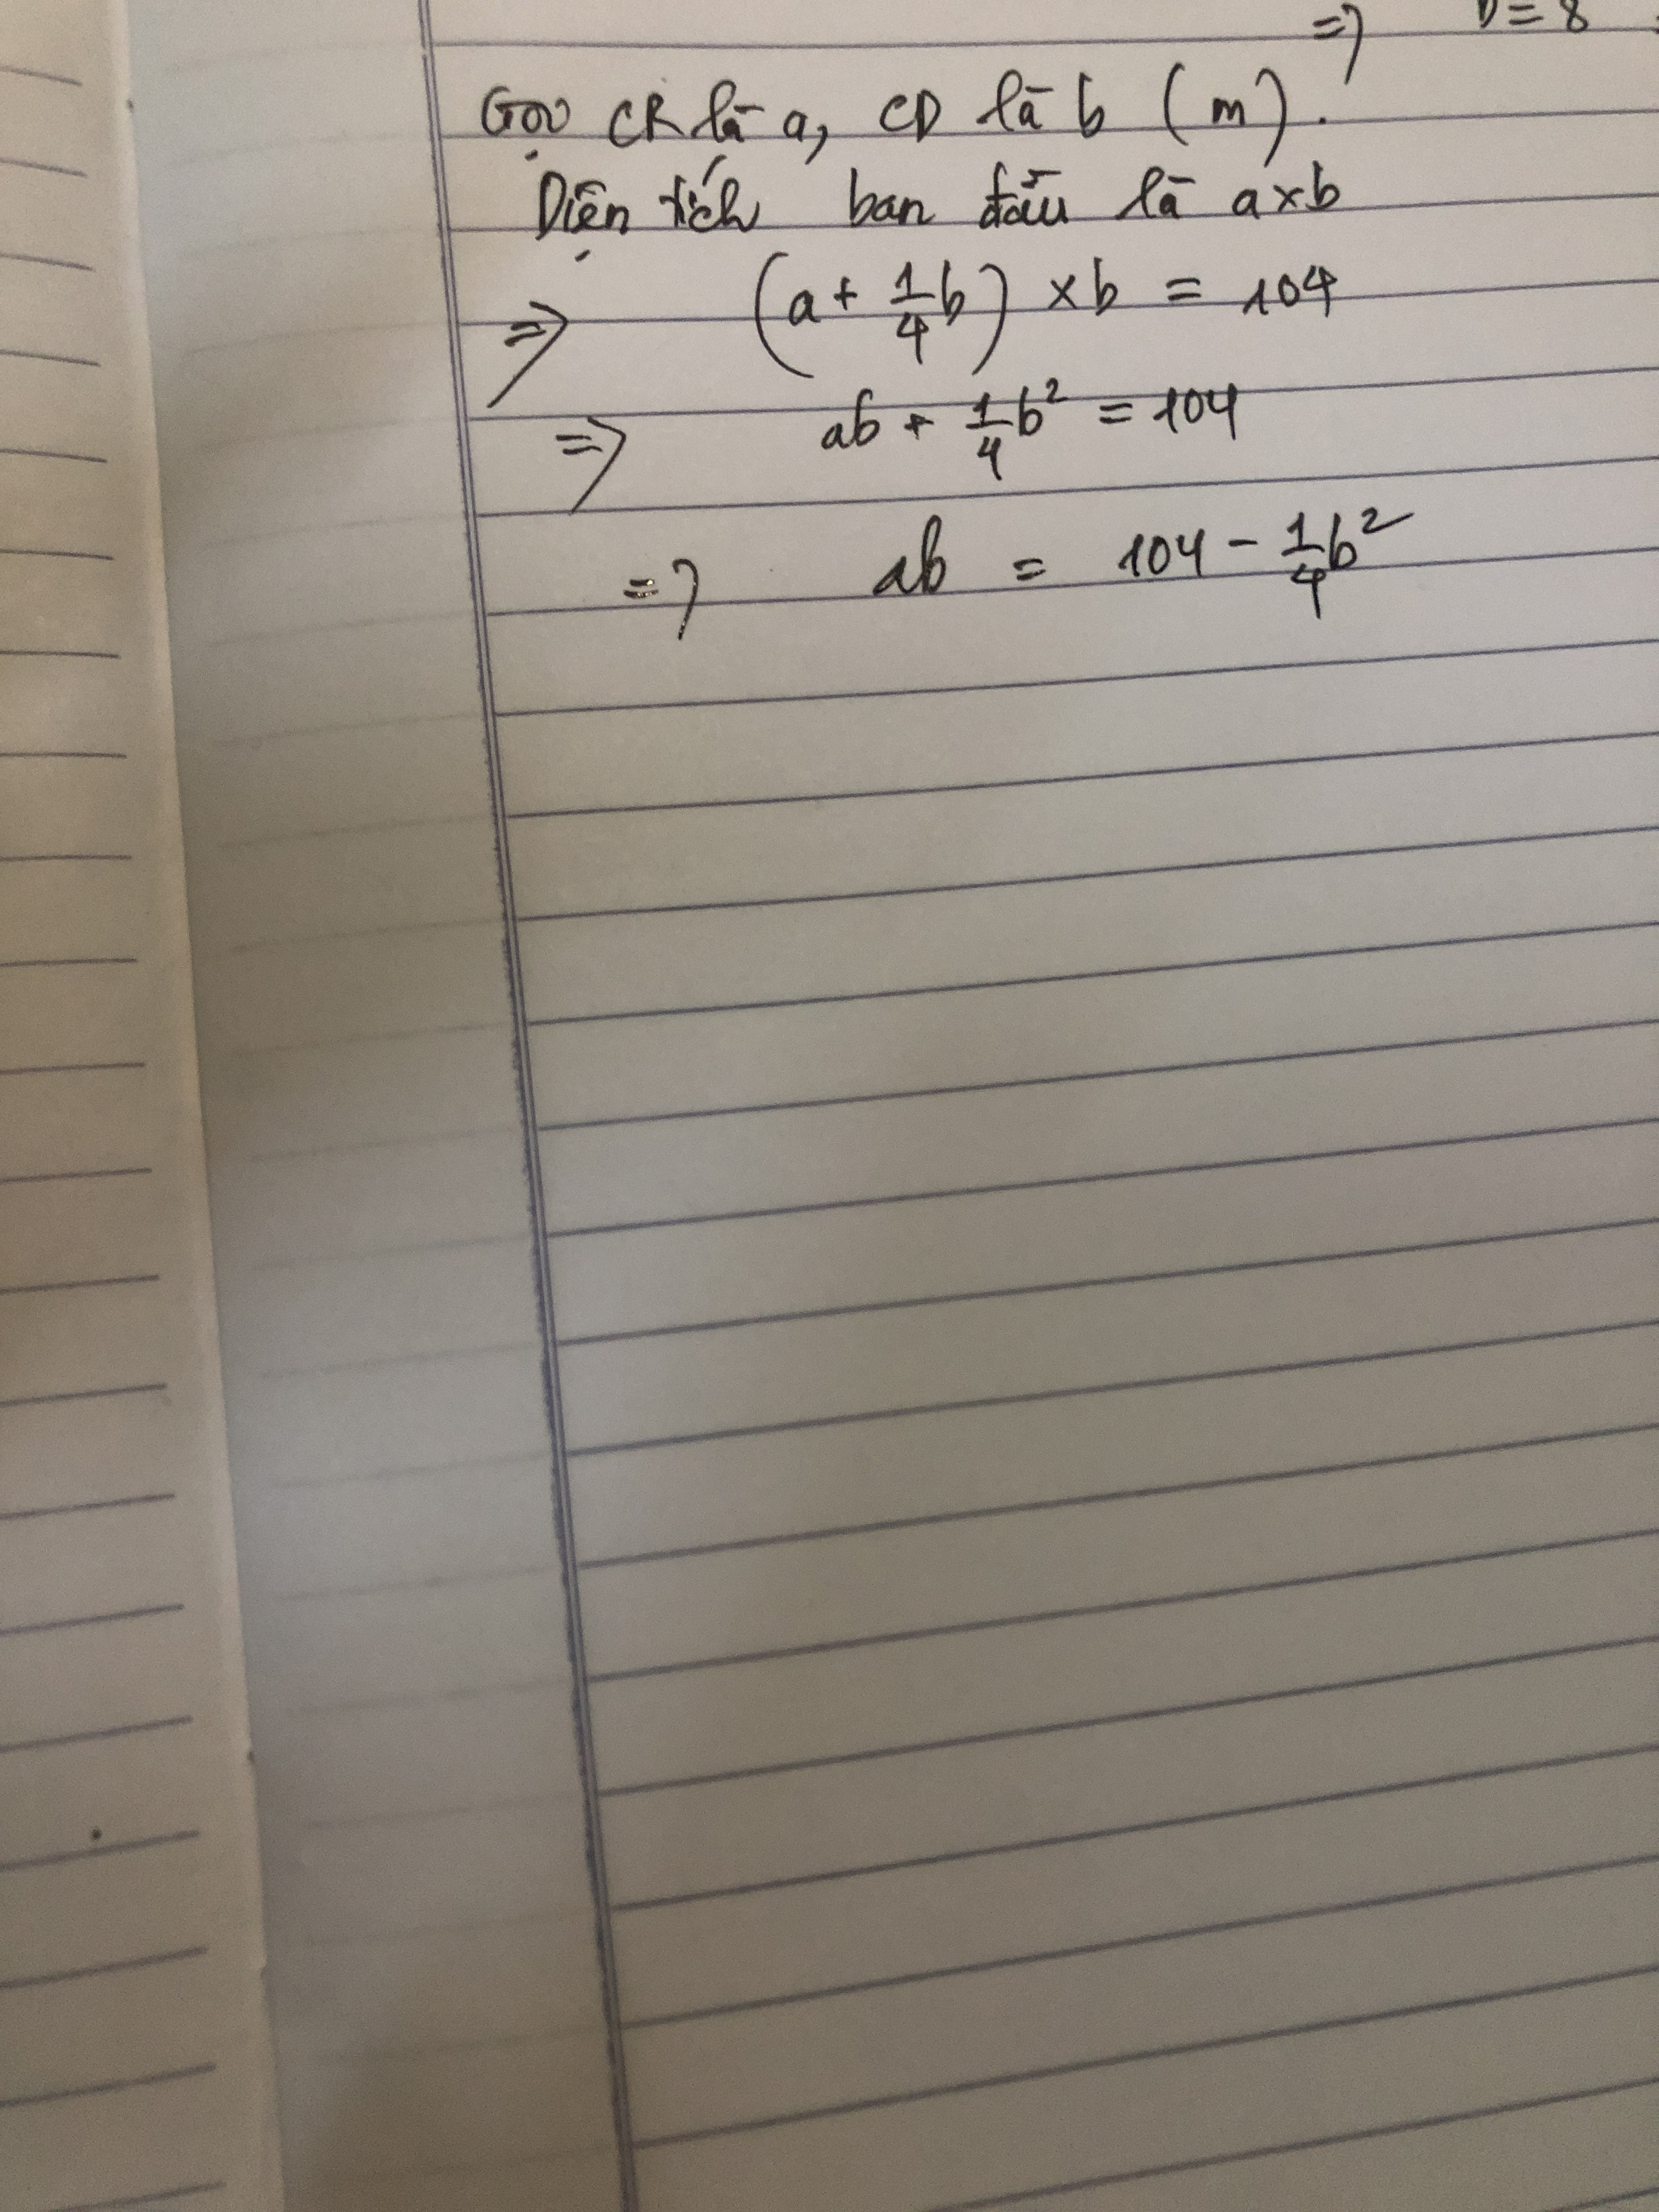 => b = 8
Gọi CR là a, CD là b (m).
Diện tích ban đầu là a x b
=> (a + 1/4 b) x b = 104
=> ab + 1/4 b² = 104
=> ab = 104 - 1/4 b²